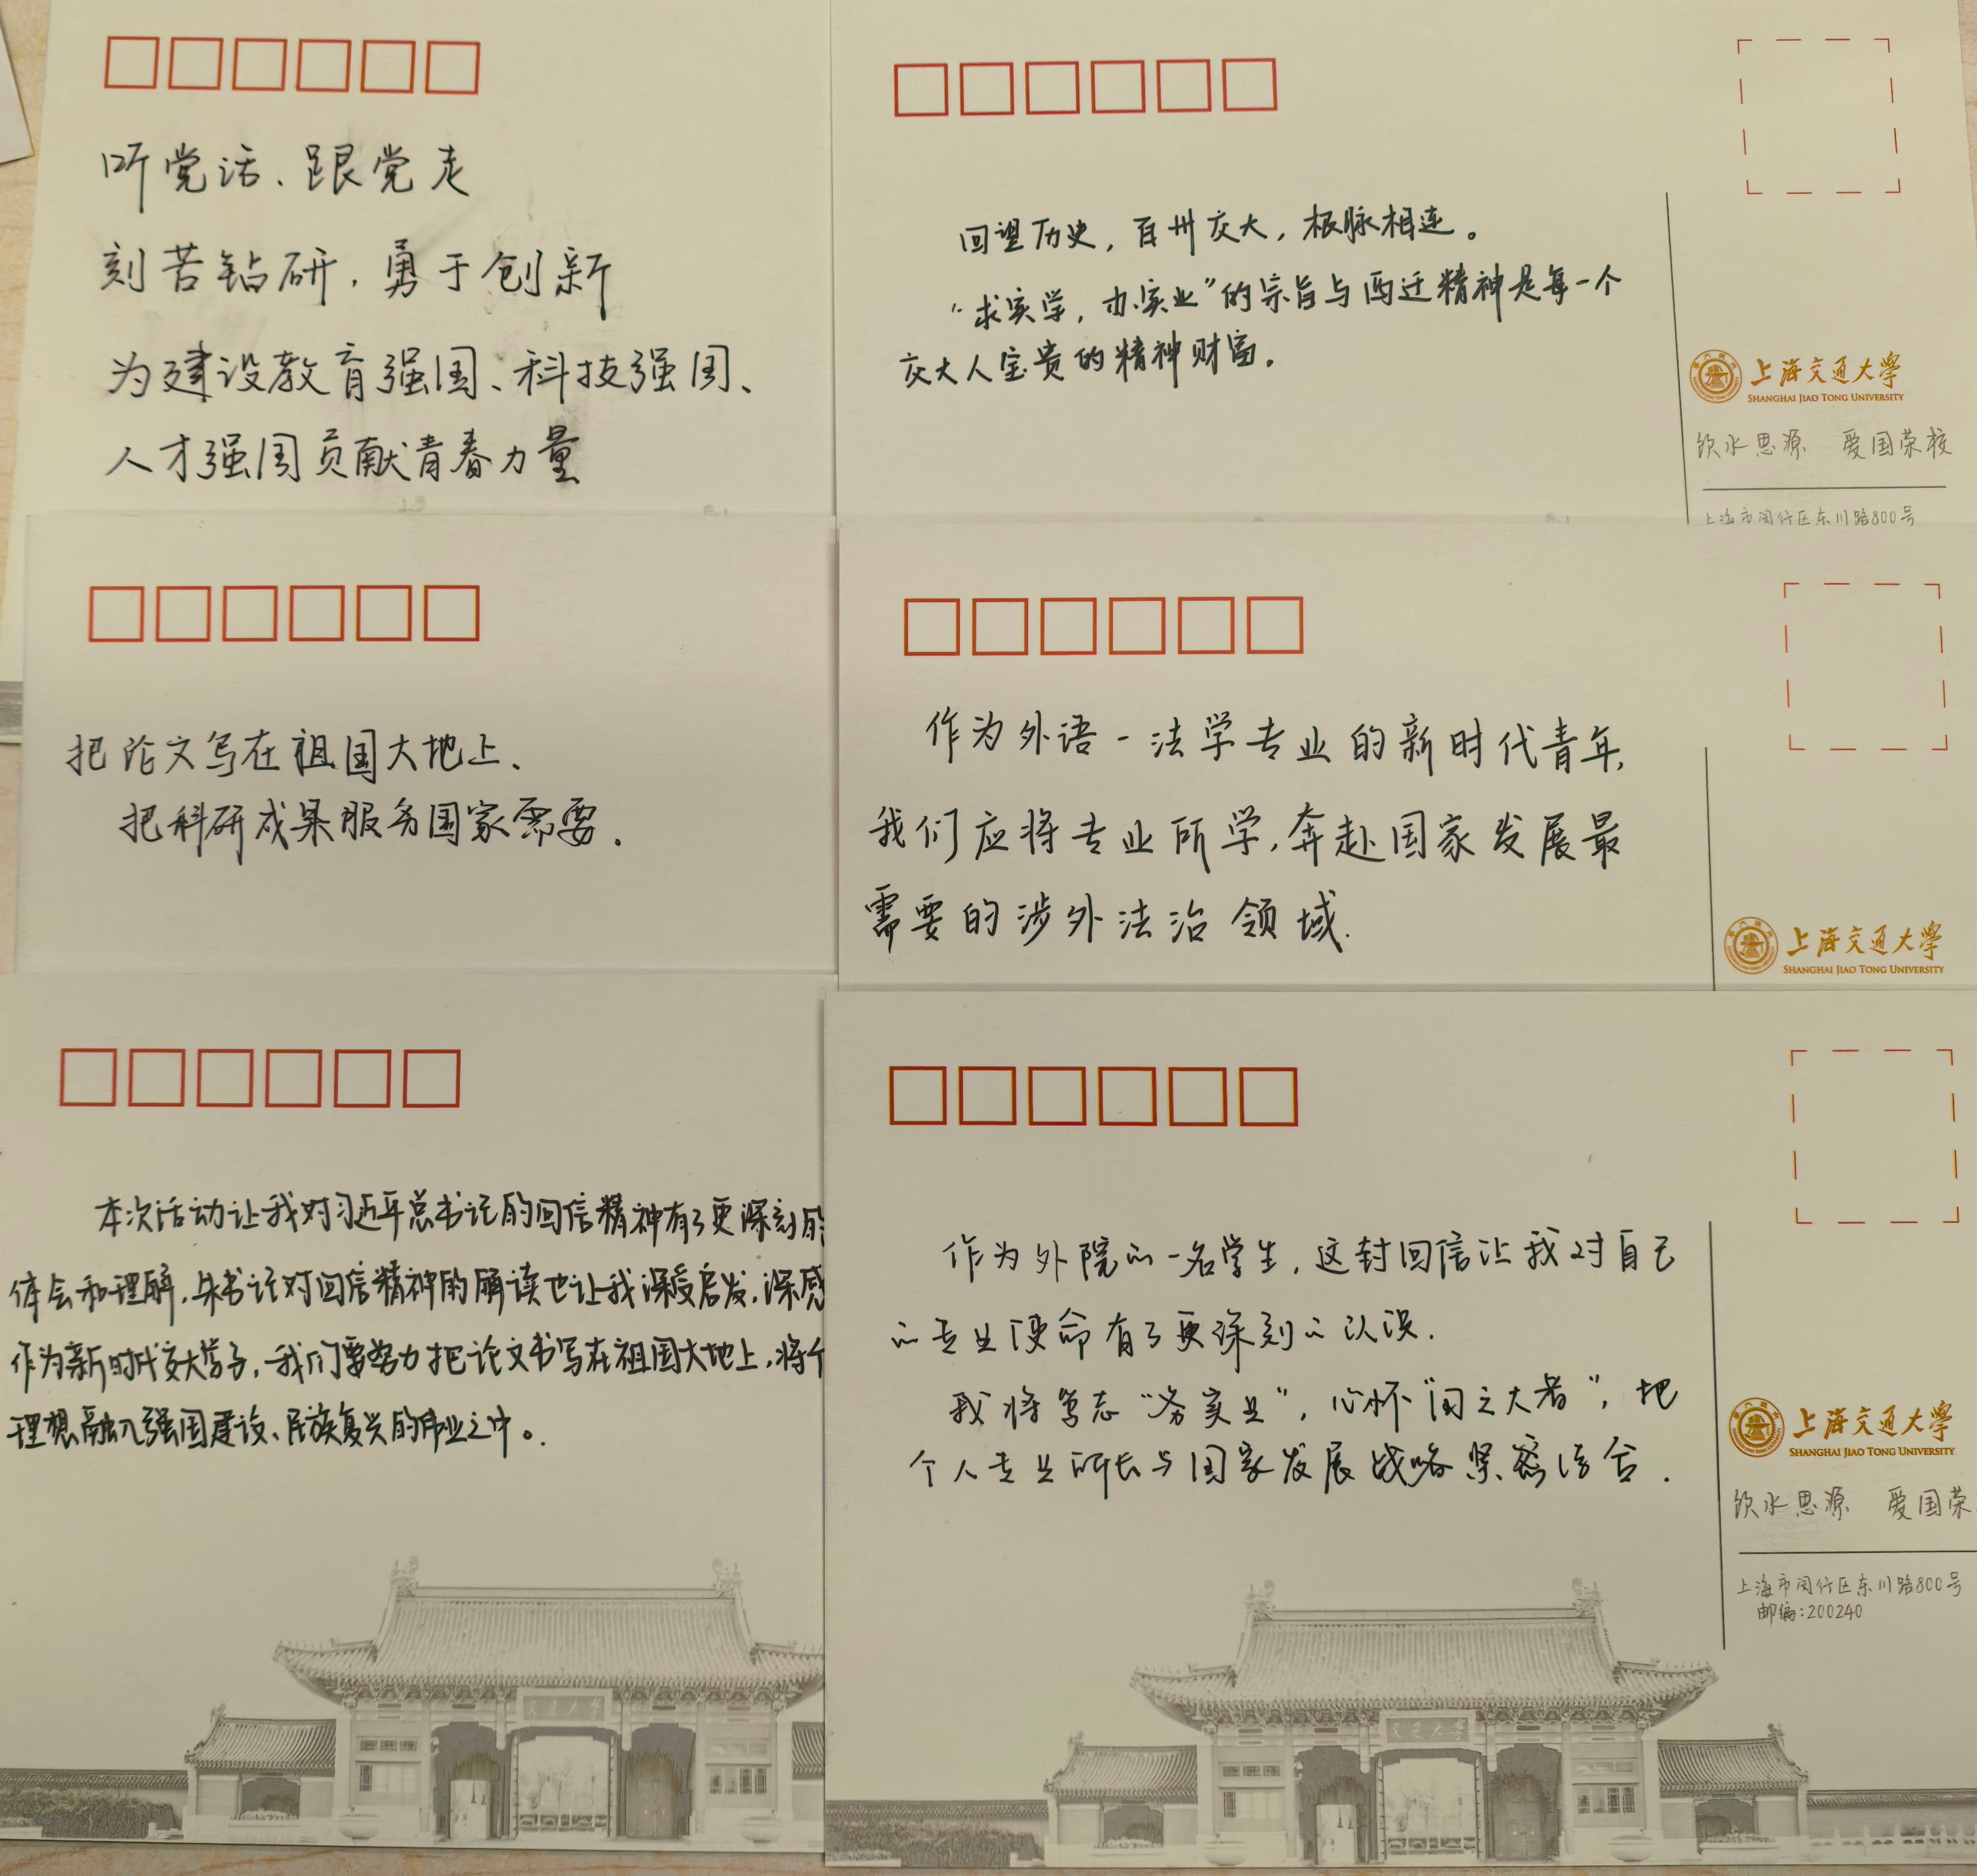 听党话、跟党走
刻苦钻研,勇于创新
为建设教育强国、科技强国、
人才强国贡献青春力量
回望历史,百卅交大,根脉相连。
“求实学,办实业”的宗旨与西迁精神是每一个
交大人宝贵的精神财富。
上海交通大学
SHANGHAI JIAO TONG UNIVERSITY
饮水思源 爱国荣校
上海市闵行区东川路800号
把论文写在祖国大地上、
把科研成果服务国家需要.
作为外语-法学专业的新时代青年,
我们应将专业所学,奔赴国家发展最
需要的涉外法治领域.
上海交通大学
SHANGHAI JIAO TONG UNIVERSITY
本次活动让我对习近平总书记的回信精神有了更深刻的
体会和理解,朱书记对回信精神的解读也让我深受启发,深感
作为新时代交大学子,我们要努力把论文书写在祖国大地上,将个
理想融入强国建设、民族复兴的伟业之中。
交通大学
作为外院的一名学生,这封回信让我对自己
的专业使命有了更深刻的认识.
我将笃志“务实业”,心怀“国之大者”,把
个人专业所长与国家发展战略紧密结合.
上海交通大学
SHANGHAI JIAO TONG UNIVERSITY
饮水思源 爱国荣
上海市闵行区东川路800号
邮编:200240
交通大学